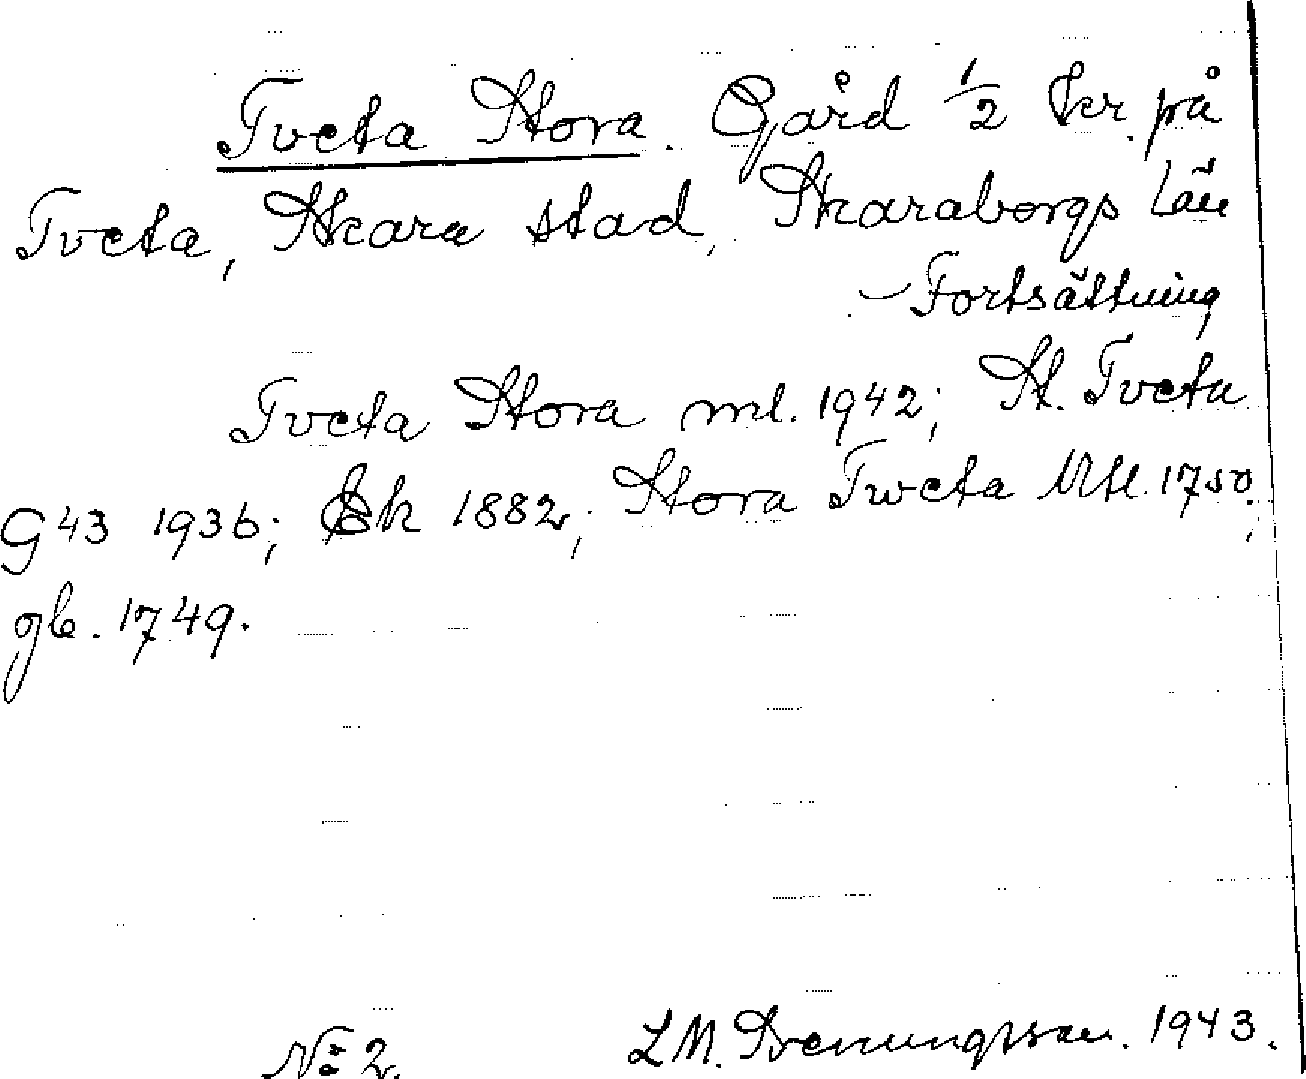 Tveta Stora. Gård 1/2 kr. på
Tveta, Skara stad, Skaraborgs län
- Fortsättning
Tveta Stora ml. 1942; St. Tveta
G43 1936; Ek 1882; Stora Tweta Mtl. 1750;
gb. 1749.
No 2. L M. Svenungsson. 1943.